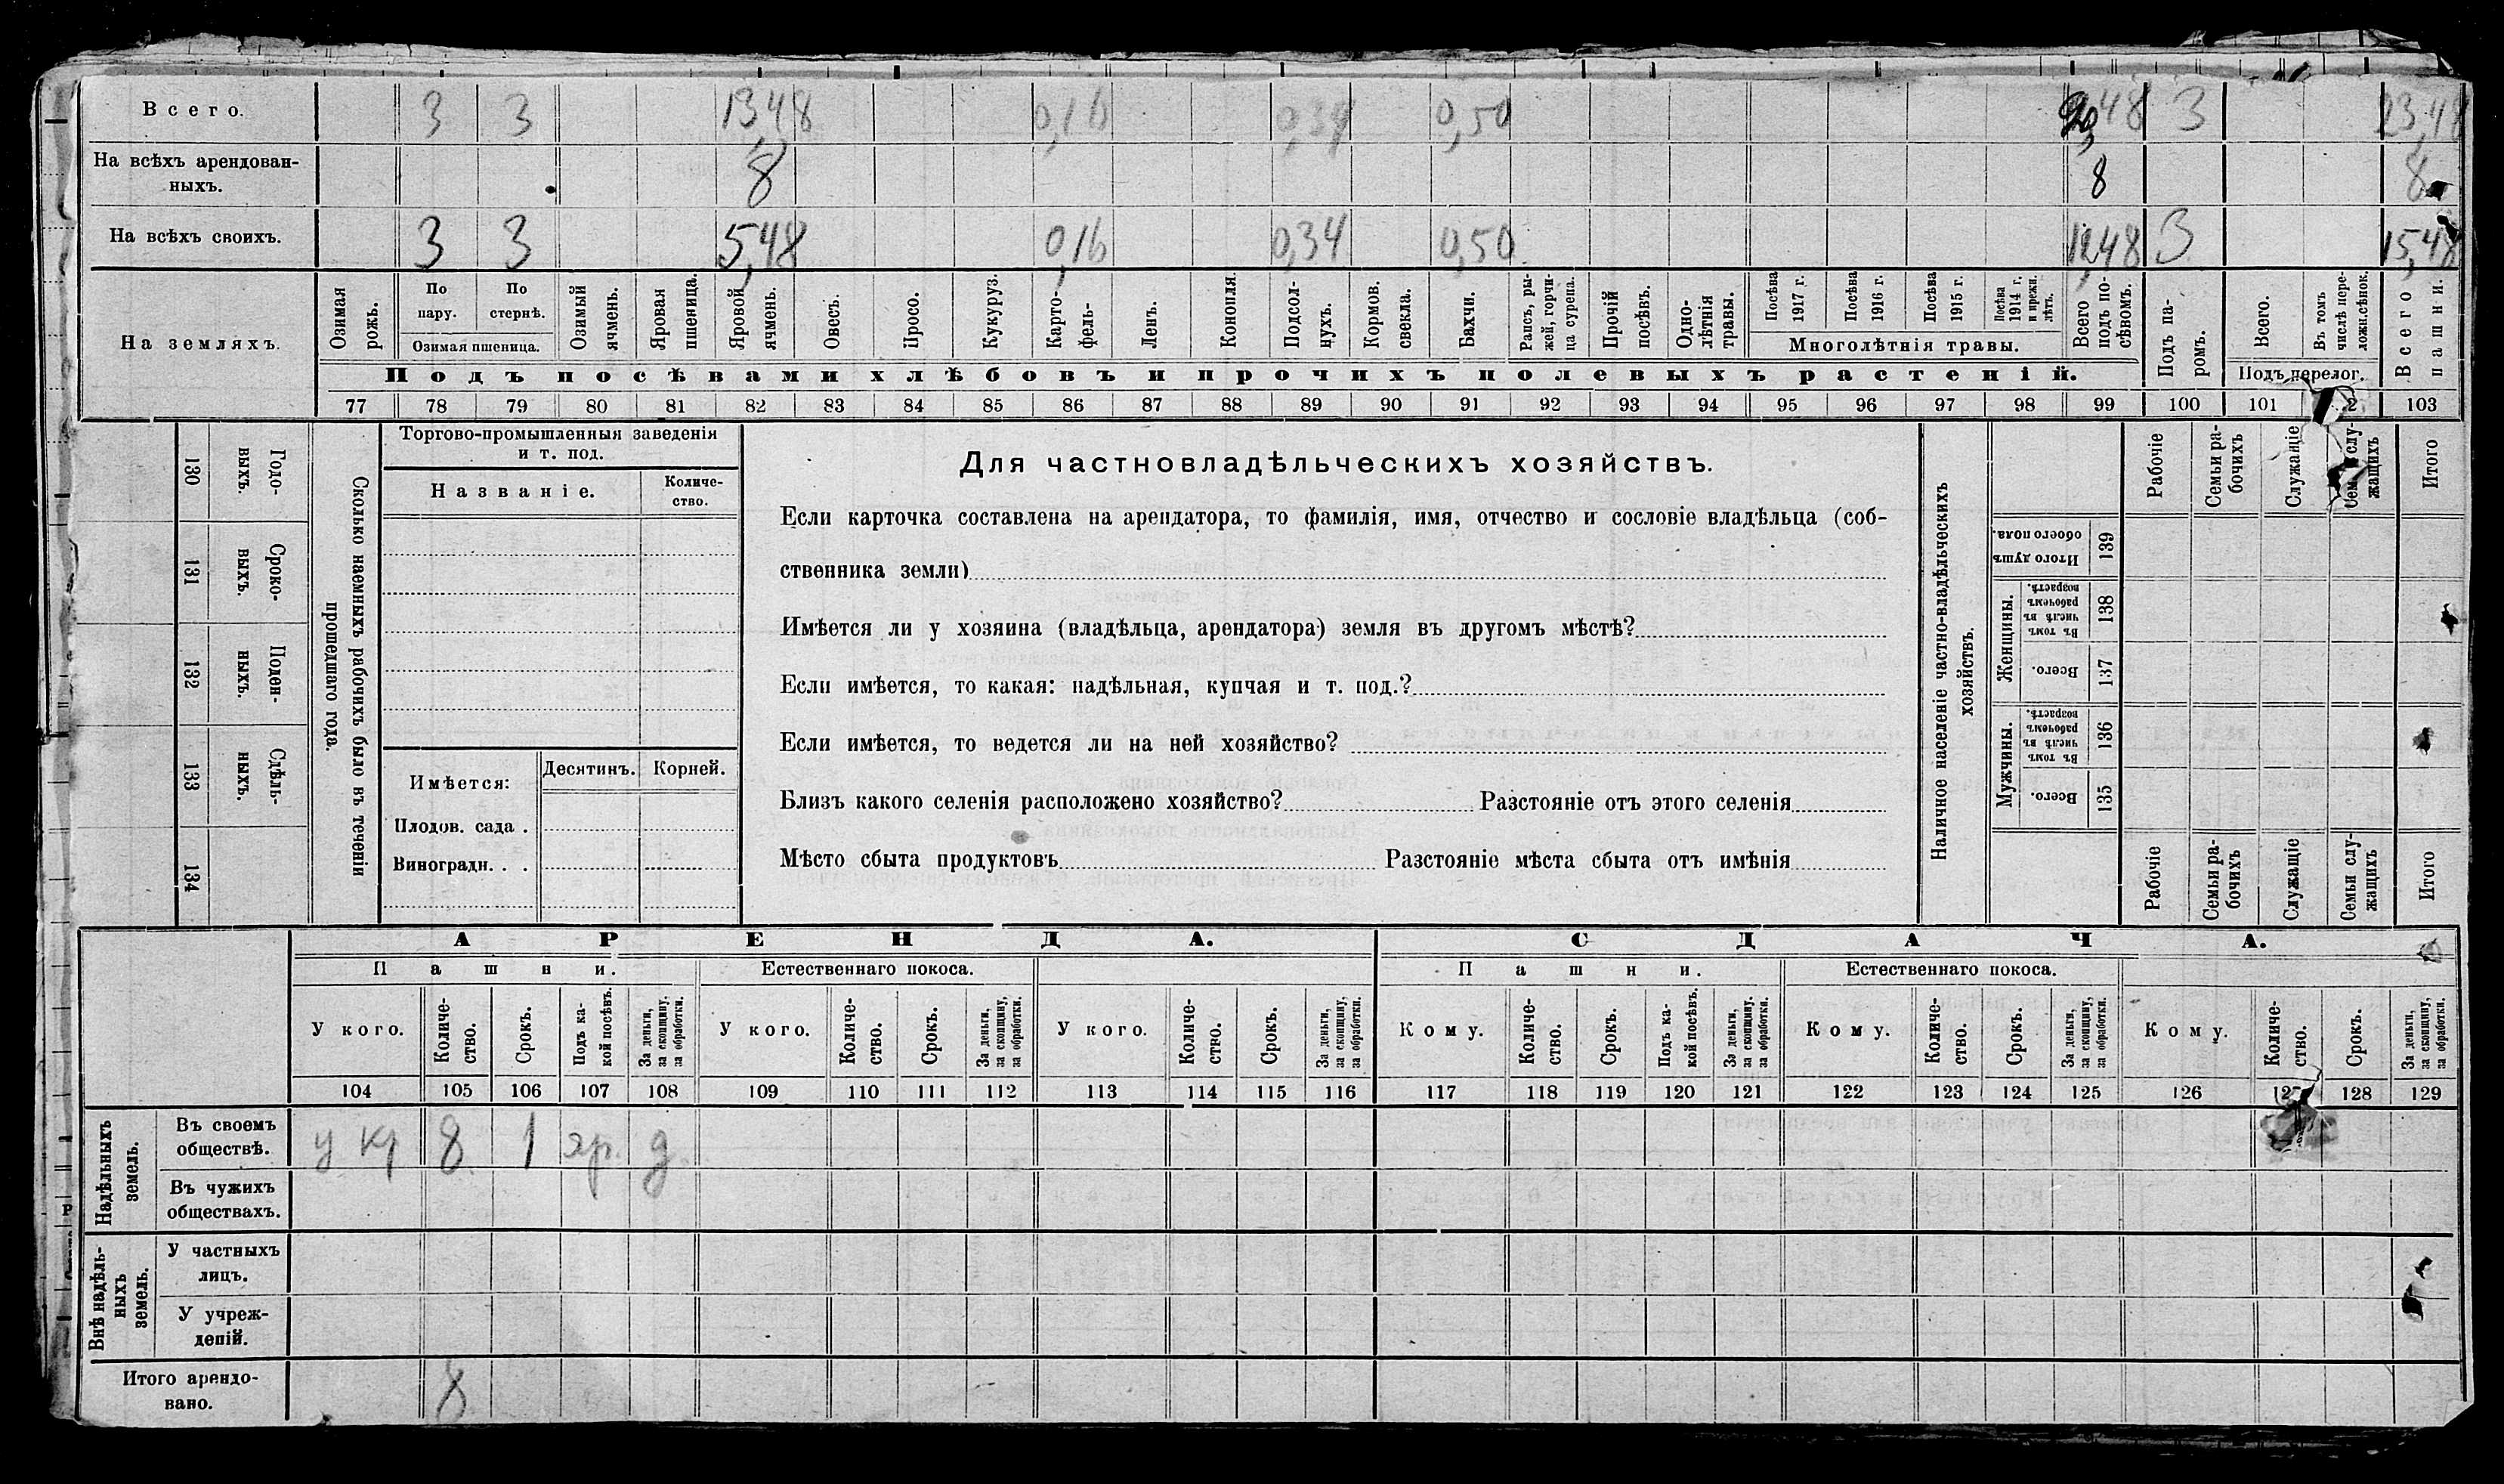 Всего. 3 3 13,48 0,16 0,34 0,50 20,48 3 23,48
На всѣхъ арендован-
ныхъ. 8 8 8
На всѣхъ своихъ. 3 3 5,48 0,16 0,34 0,50 12,48 3 15,48
На земляхъ.
Озимая рожь.
По пару.
По стернѣ.
Озимая пшеница.
Озимый ячмень.
Яровая пшеница.
Яровой ячмень.
Овесъ.
Просо.
Кукуруз.
Карто-
фель-
Ленъ.
Конопля.
Подсол-
нухъ.
Кормов. свекла.
Бахчи.
Рапсъ, ры-
жей, горчи-
ца сурепа.
Прочій посѣвъ.
Одно-
лѣтнія травы.
Посѣва 1917 г.
Посѣва 1916 г.
Посѣва 1915 г.
Посѣва 1914 г. и прежн. лѣтъ.
Многолѣтнія травы.
Всего подъ по-
сѣвомъ.
Подъ па-
ромъ.
Всего.
Въ томъ числѣ пере-
ложн. сѣнок.
Подъ перелог.
Всего пашни.
Подъ посѣвами хлѣбовъ и прочихъ полевыхъ растеній.
77 78 79 80 81 82 83 84 85 86 87 88 89 90 91 92 93 94 95 96 97 98 99 100 101 2 103
130 Годо-
выхъ.
131 Сроко-
выхъ.
132 Поден-
ныхъ.
133 Сдѣль-
ныхъ.
134
Сколько наемныхъ рабочихъ было въ теченіи
прошедшаго года.
Торгово-промышленныя заведенія
и т. под.
Названіе.
Количе-
ство.
Имѣется:
Десятинъ. Корней.
Плодов. сада .
Виноградн. . .
Для частновладѣльческихъ хозяйствъ.
Если карточка составлена на арендатора, то фамилія, имя, отчество и сословіе владѣльца (соб-
ственника земли)
Имѣется ли у хозяина (владѣльца, арендатора) земля въ другомъ мѣстѣ?
Если имѣется, то какая: надѣльная, купчая и т. под.?
Если имѣется, то ведется ли на ней хозяйство?
Близъ какого селенія расположено хозяйство? Разстояніе отъ этого селенія
Мѣсто сбыта продуктовъ Разстояніе мѣста сбыта отъ имѣнія
Наличное населеніе частно-владѣльческихъ
хозяйствъ.
Рабочіе
Семьи ра-
бочихъ
Служащіе
Семьи слу-
жащихъ
Итого
Итого душ обоего пола. 139
Женщины.
Въ томъ числѣ въ рабочемъ возрастѣ. 138
Всего. 137
Мужчины.
Въ томъ числѣ въ рабочемъ возрастѣ. 136
Всего. 135
Рабочіе
Семьи ра-
бочихъ
Служащіе
Семьи слу-
жащихъ
Итого
АРЕНДА. СДАЧА.
Пашни. Естественнаго покоса. Пашни. Естественнаго покоса.
У кого.
Количе-
ство.
Срокъ.
Подъ ка-
кой посѣвъ.
За деньги, за скопщину, за обработки.
У кого.
Количе-
ство.
Срокъ.
За деньги, за скопщину, за обработки.
У кого.
Количе-
ство.
Срокъ.
За деньги, за скопщину, за обработки.
Кому.
Количе-
ство.
Срокъ.
Подъ ка-
кой посѣвъ.
За деньги, за скопщину, за обработки.
Кому.
Количе-
ство.
Срокъ.
За деньги, за скопщину, за обработки.
Кому.
Количе-
ство.
Срокъ.
За деньги, за скопщину, за обработки.
104 105 106 107 108 109 110 111 112 113 114 115 116 117 118 119 120 121 122 123 124 125 126 127 128 129
Надѣльныхъ земель.
Въ своемъ
обществѣ. у кр 8 1 яр. д
Въ чужихъ
обществахъ.
Внѣ надѣль-
ныхъ земель.
У частныхъ
лицъ.
У учреж-
деній.
Итого арендо-
вано. 8